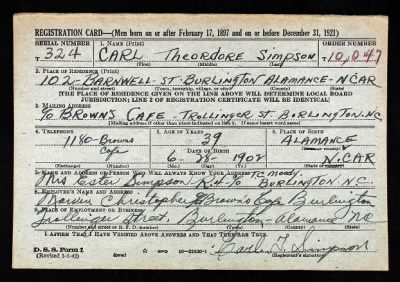 REGISTRATION CARD—(Men born on or after February 17, 1897 and on or before December 31, 1921)
SERIAL NUMBER 1. NAME (Print) ORDER NUMBER
T 324 CARL Theordore Simpson 10,047
(First) (Middle) (Last)
2. PLACE OF RESIDENCE (Print)
102-BARNWELL-ST-BURLINGTON ALAMANCE-N CAR
(Number and street) (Town, township, village, or city) (County) (State)
[THE PLACE OF RESIDENCE GIVEN ON THE LINE ABOVE WILL DETERMINE LOCAL BOARD
JURISDICTION; LINE 2 OF REGISTRATION CERTIFICATE WILL BE IDENTICAL]
3. MAILING ADDRESS
% BROWNS CAFE TROLLINGER ST. BURLINGTON. NC
[Mailing address if other than place indicated on line 2. If same insert word same]
4. TELEPHONE 5. AGE IN YEARS 6. PLACE OF BIRTH
1180-Browns 39 ALAMANCE
Cafe DATE OF BIRTH
6-28-1902 N.CAR
7. NAME AND ADDRESS OF PERSON WHO WILL ALWAYS KNOW YOUR ADDRESS TC Moody.
Mrs Ester Simpson R.4-% BURLINGTON. N.C.
8. EMPLOYER'S NAME AND ADDRESS
Marvin Christopher Browns Cafe Burlington
9. PLACE OF EMPLOYMENT OR BUSINESS
Street, Burlington-Alamance NC
(Number and street or R. F. D. number) (Town) (County) (State)
I AFFIRM THAT I HAVE VERIFIED ABOVE ANSWERS AND THAT THEY ARE TRUE.
D. S. S. Form 1
(Revised 1-1-42) GPO 16-21630-1 Carl T. Simpson
(Registrant's signature)